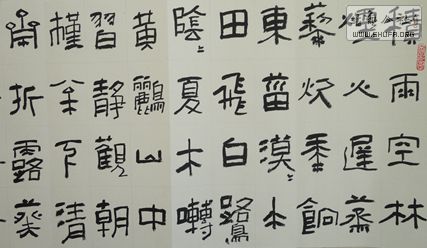 積雨空林
煙火遲蒸
藜炊黍餉
東菑漠〻水
田飛白鷺
陰〻夏木囀
黃鸝山中
習靜觀朝
槿松下清
齋折露葵